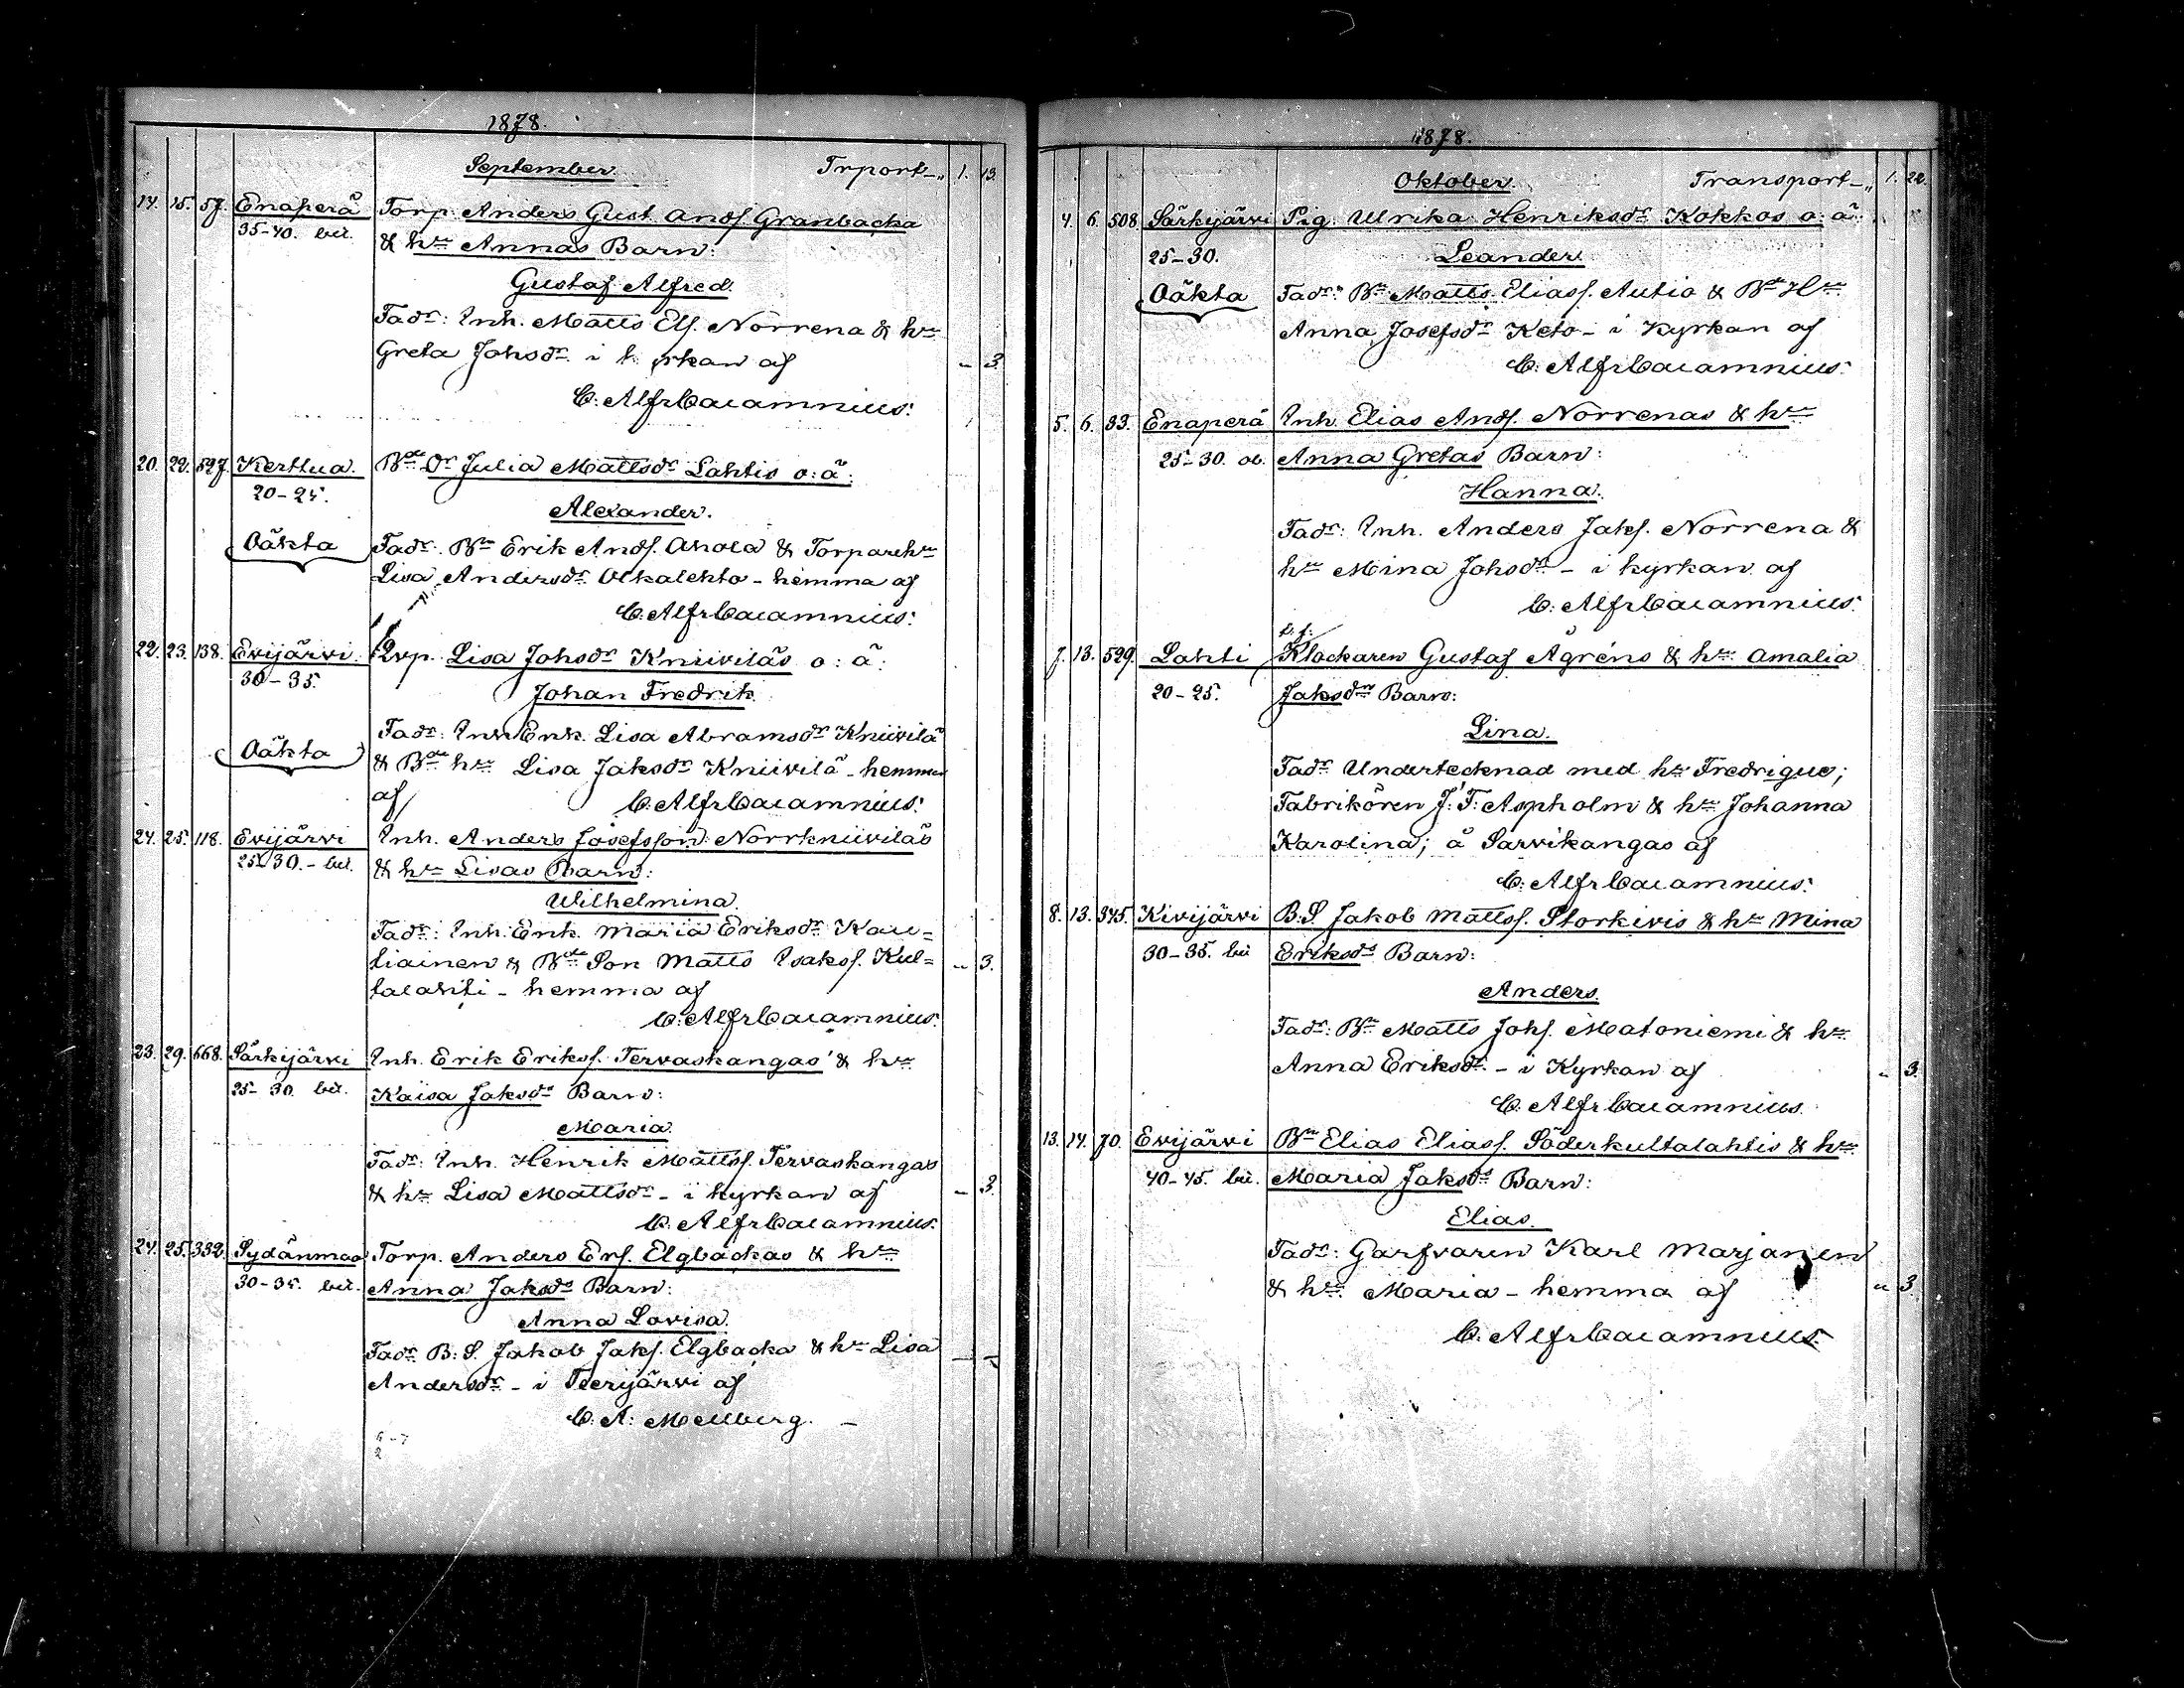 1878.
September. Trport-„ 1. 13.
14. 15. 57. Enaperä Torp. Anders Gust. Andſ. Granbacka
35-40. bet. & hu Annas Barn:
Gustaf Alfred.
Fadr: Inh. Matts Elſ. Norrena & hu
Greta Johsdr i kyrkan af - 3.
C: Alfr Calamnius:
20. 22. 527. Kerttua. Bde Dr Julia Mattsdr Lahtis o: ä:
20-25.
Alexander.
Oäkta Fadr. Bn Erik Andſ. Ahola & Torparehu
Lisa Andersdr Olkalehto - hemma af
C: Alfr Calamnius:
22. 23. 138. Evijärvi Qvp. Lisa Johsdr Kniiviläs o: ä:
30-35.
Johan Fredrik
Fadr: Inh Enk. Lisa Abramsdr Kniivilä
Oäkta & Bde hu Lisa Jaksdr Kniivilä - hemma
af C: Alfr Calamnius:
24. 25. 118. Evijärvi Inh. Anders Josefsson Norrkniiviläs
25-30. - bet. & hu Lisas Barn:
Wilhelmina.
Fadr: Inh. Enk. Maria Eriksdr Kau=
liainen & Bde Son Matts Isaksſ. Kul= - 3.
lalahti - hemma af
C: Alfr Calamnius:
23. 29. 668. Särkijärvi Inh. Erik Eriksſ. Tervaskangas' & hu
25-30. bet. Kaisa Jaksdr Barn:
Maria.
Fadr: Inh. Henrik Mattsſ. Tervaskangas
& hu Lisa Mattsdr - i kyrkan af - 3.
C: Alfr Calamnius:
24. 25. 332. Sydänmaa Torp. Anders Erſ. Elgbackas & hu
30-35. bet. Anna Jaksds Barn:
Anna Lovisa.
Fadr. B: S. Jakob Jakſ. Elgbacka & hu Lisa - -
Andersdr - i Teerijärvi af
C. A: Mellberg. -
1878.
Oktober. Transport-„ 1. 22.
4. 6. 508. Särkijärvi Pig. Ulrika Henriksdr Kokkos o: ä:
25-30. Leander.
Oäkta Fadr: Bn Matts Eliasſ. Autio & Bde Hu
Anna Josefsdr Keto - i Kyrkan af
C: Alfr Calamnius:
5. 6. 33. Enaperä Inh. Elias Andſ. Norrenas & hu
25-30. Anna Gretas Barn:
Hanna.
Fadr: Inh. Anders Jakſ. Norrena &
hu Mina Johsdr - i kyrkan af
C: Alfr Calamnius:
7. 13. 529. Lahti Klockaren Gustaf Ågréns & hu Amalia
20-25. Jaksdrs Barn:
Lina.
Fadr Undertecknad med hu Fredrique;
Fabrikören J: F: Aspholm & hu Johanna
Karolina; å Sarvikangas af
C: Alfr Calamnius:
8. 13. 345. Kivijärvi B: S Jakob Mattsſ. Storkivis & hu Mina
30-35. bet Eriksds Barn:
Anders.
Fadr: Bn Matts Johſ. Matoniemi & hu
Anna Eriksdr - i Kyrkan af - 3.
C: Alfr Calamnius.
13. 14. 70. Evijärvi Bn Elias Eliasſ. Söderkultalahtis & hu
40-45. bet. Maria Jaksds Barn:
Elias.
Fadr: Garfvaren Karl Marjanen
& hu Maria - hemma af - 3.
C: Alfr Calamnius: